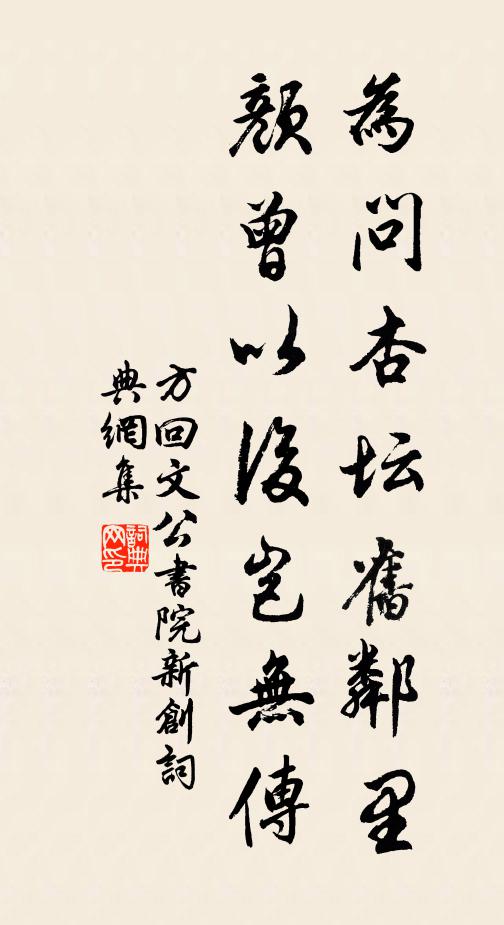 為問杏坛舊鄰里
顏曾以後豈無傳
方回文公書院新創詞
典網集
詞典
网印